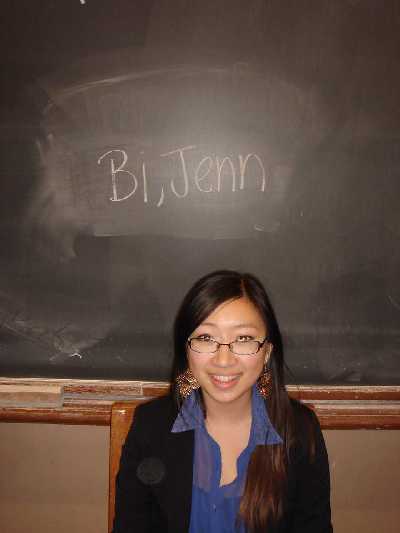 Bi, Jenn